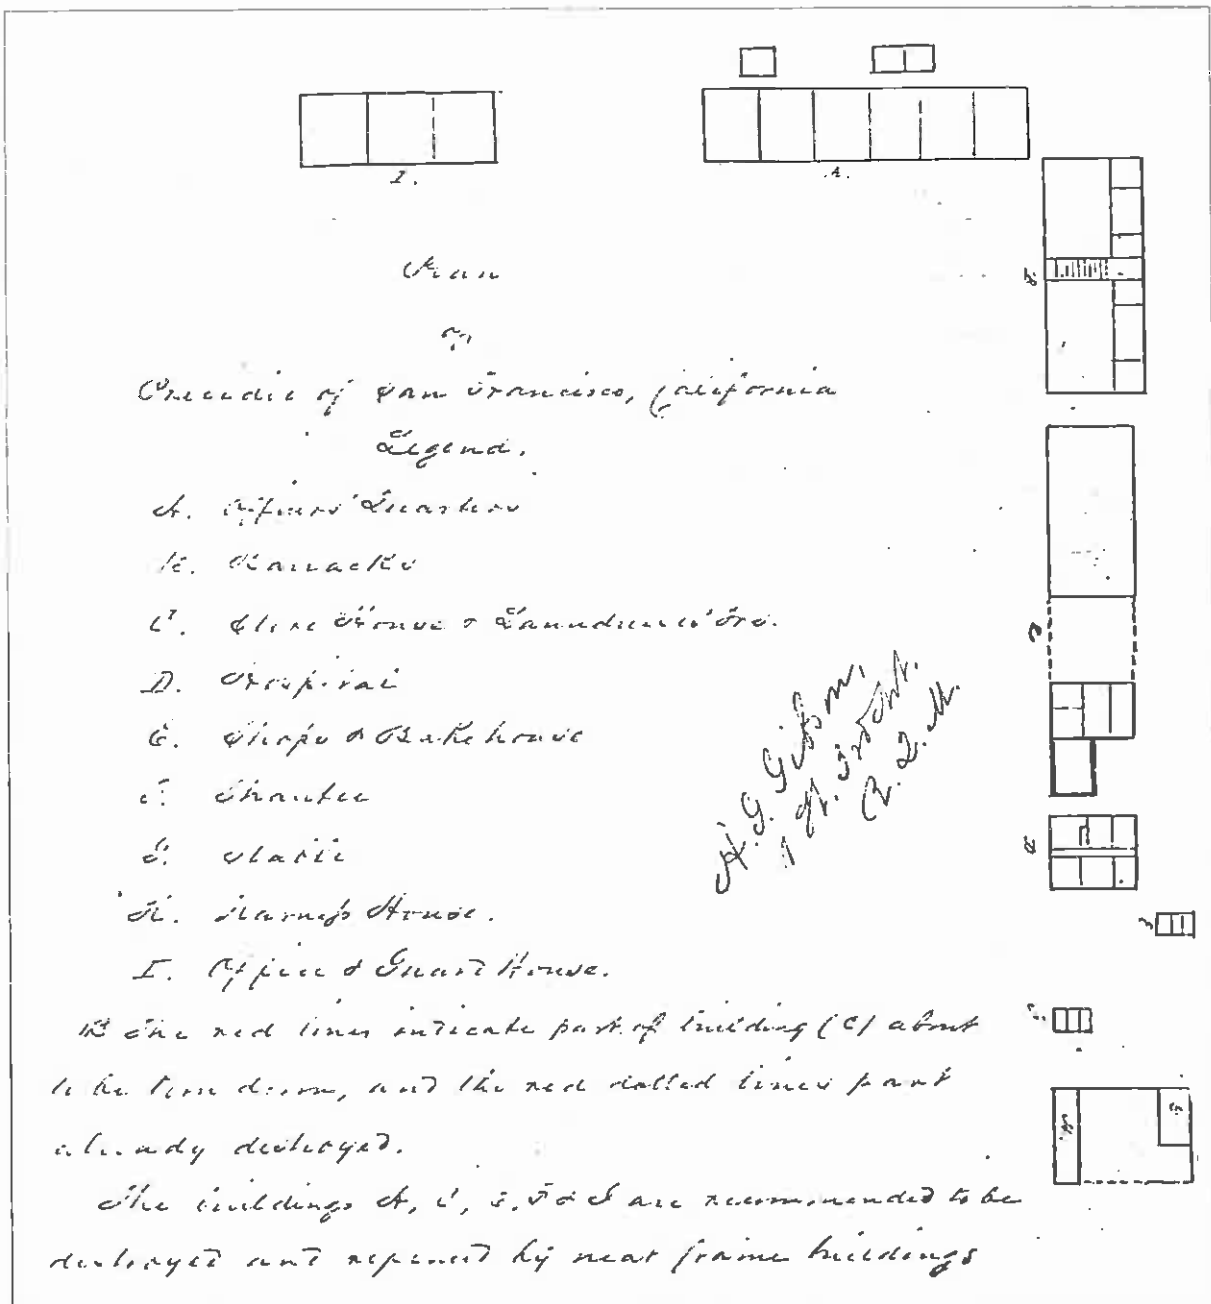 I.
A.
Plan
of
Presidio of San Francisco, California
Legend.
A. Officers' Quarters
B. Barracks
C. Store House & Laundresses' Qrs.
D. Hospital
E. Shops & Bakehouse
F. Shanties
G. Stable
H. Harness House.
I. Office & Guard House.
A. G. Gibson,
1 Lt. 3rd Art.
R. Q. M.
NB The red lines indicate part of building (C) about
to be torn down, and the red dotted lines part
already destroyed.
The buildings A, C, & I are recommended to be
destroyed and replaced by neat frame buildings